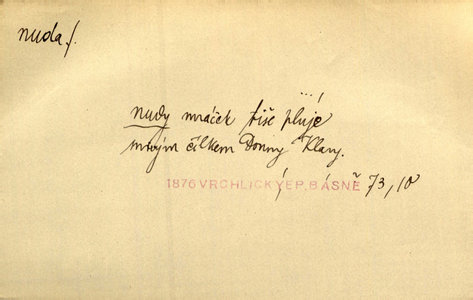 nuda f.
...!
nudy mráček tiše pluje
smavým čílkem Donny Klary.
1876 VRCHLICKÝ EP. BÁSNĚ 73,10